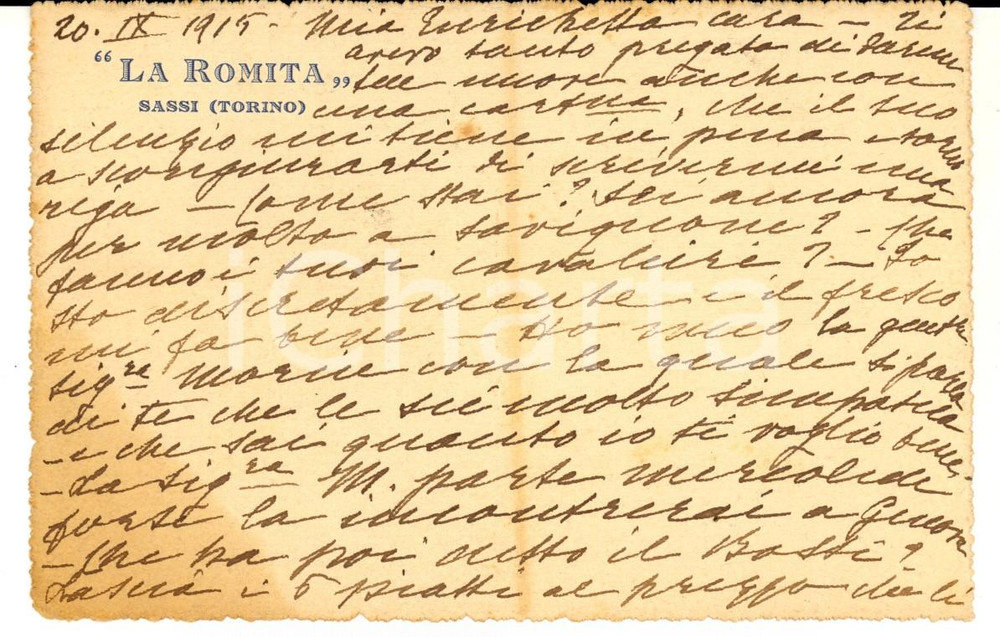 20. IX 1915 - Mia Enrichetta cara - Ti
avevo tanto pregata di darmi
"LA ROMITA„
tue nuove anche con
SASSI (TORINO)
una cartna, che il tuo
silenzio mi tiene in pena e torno
a scongiurarti di scrivermi una
riga - Come stai? Sei ancora
per molto a Savignone? - Che
fanno i tuoi cavalieri? - Io
sto discretamente e il fresco
mi fa bene - Ho meco la gentile
sigra Morni con la quale si parla
di te che le sei molto simpatica
- e che sai quanto io ti voglio bene.
- La sigra M. parte mercoledì
forse la incontrerai a Genova
- Che ha poi detto il Bossi?
Lascia i 5 piatti al prezzo che li
iCharta